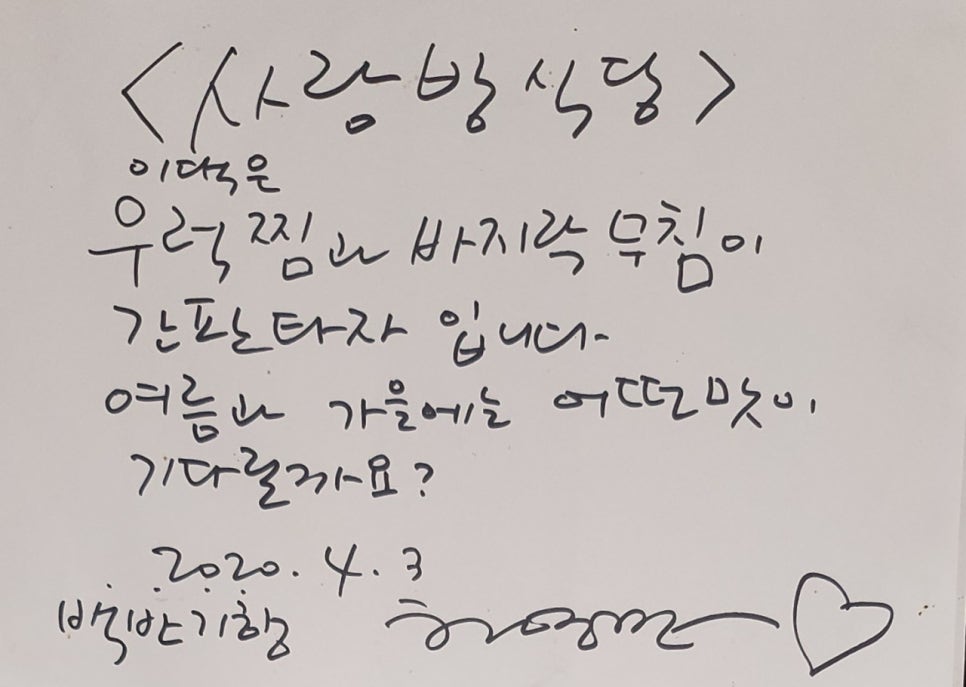 <사랑방식당>
이댁은
우럭찜과 바지락무침이
간판타자 입니다-
여름과 가을에는 어떤맛이
기다릴까요?
2020. 4. 3
백반기행 허영만